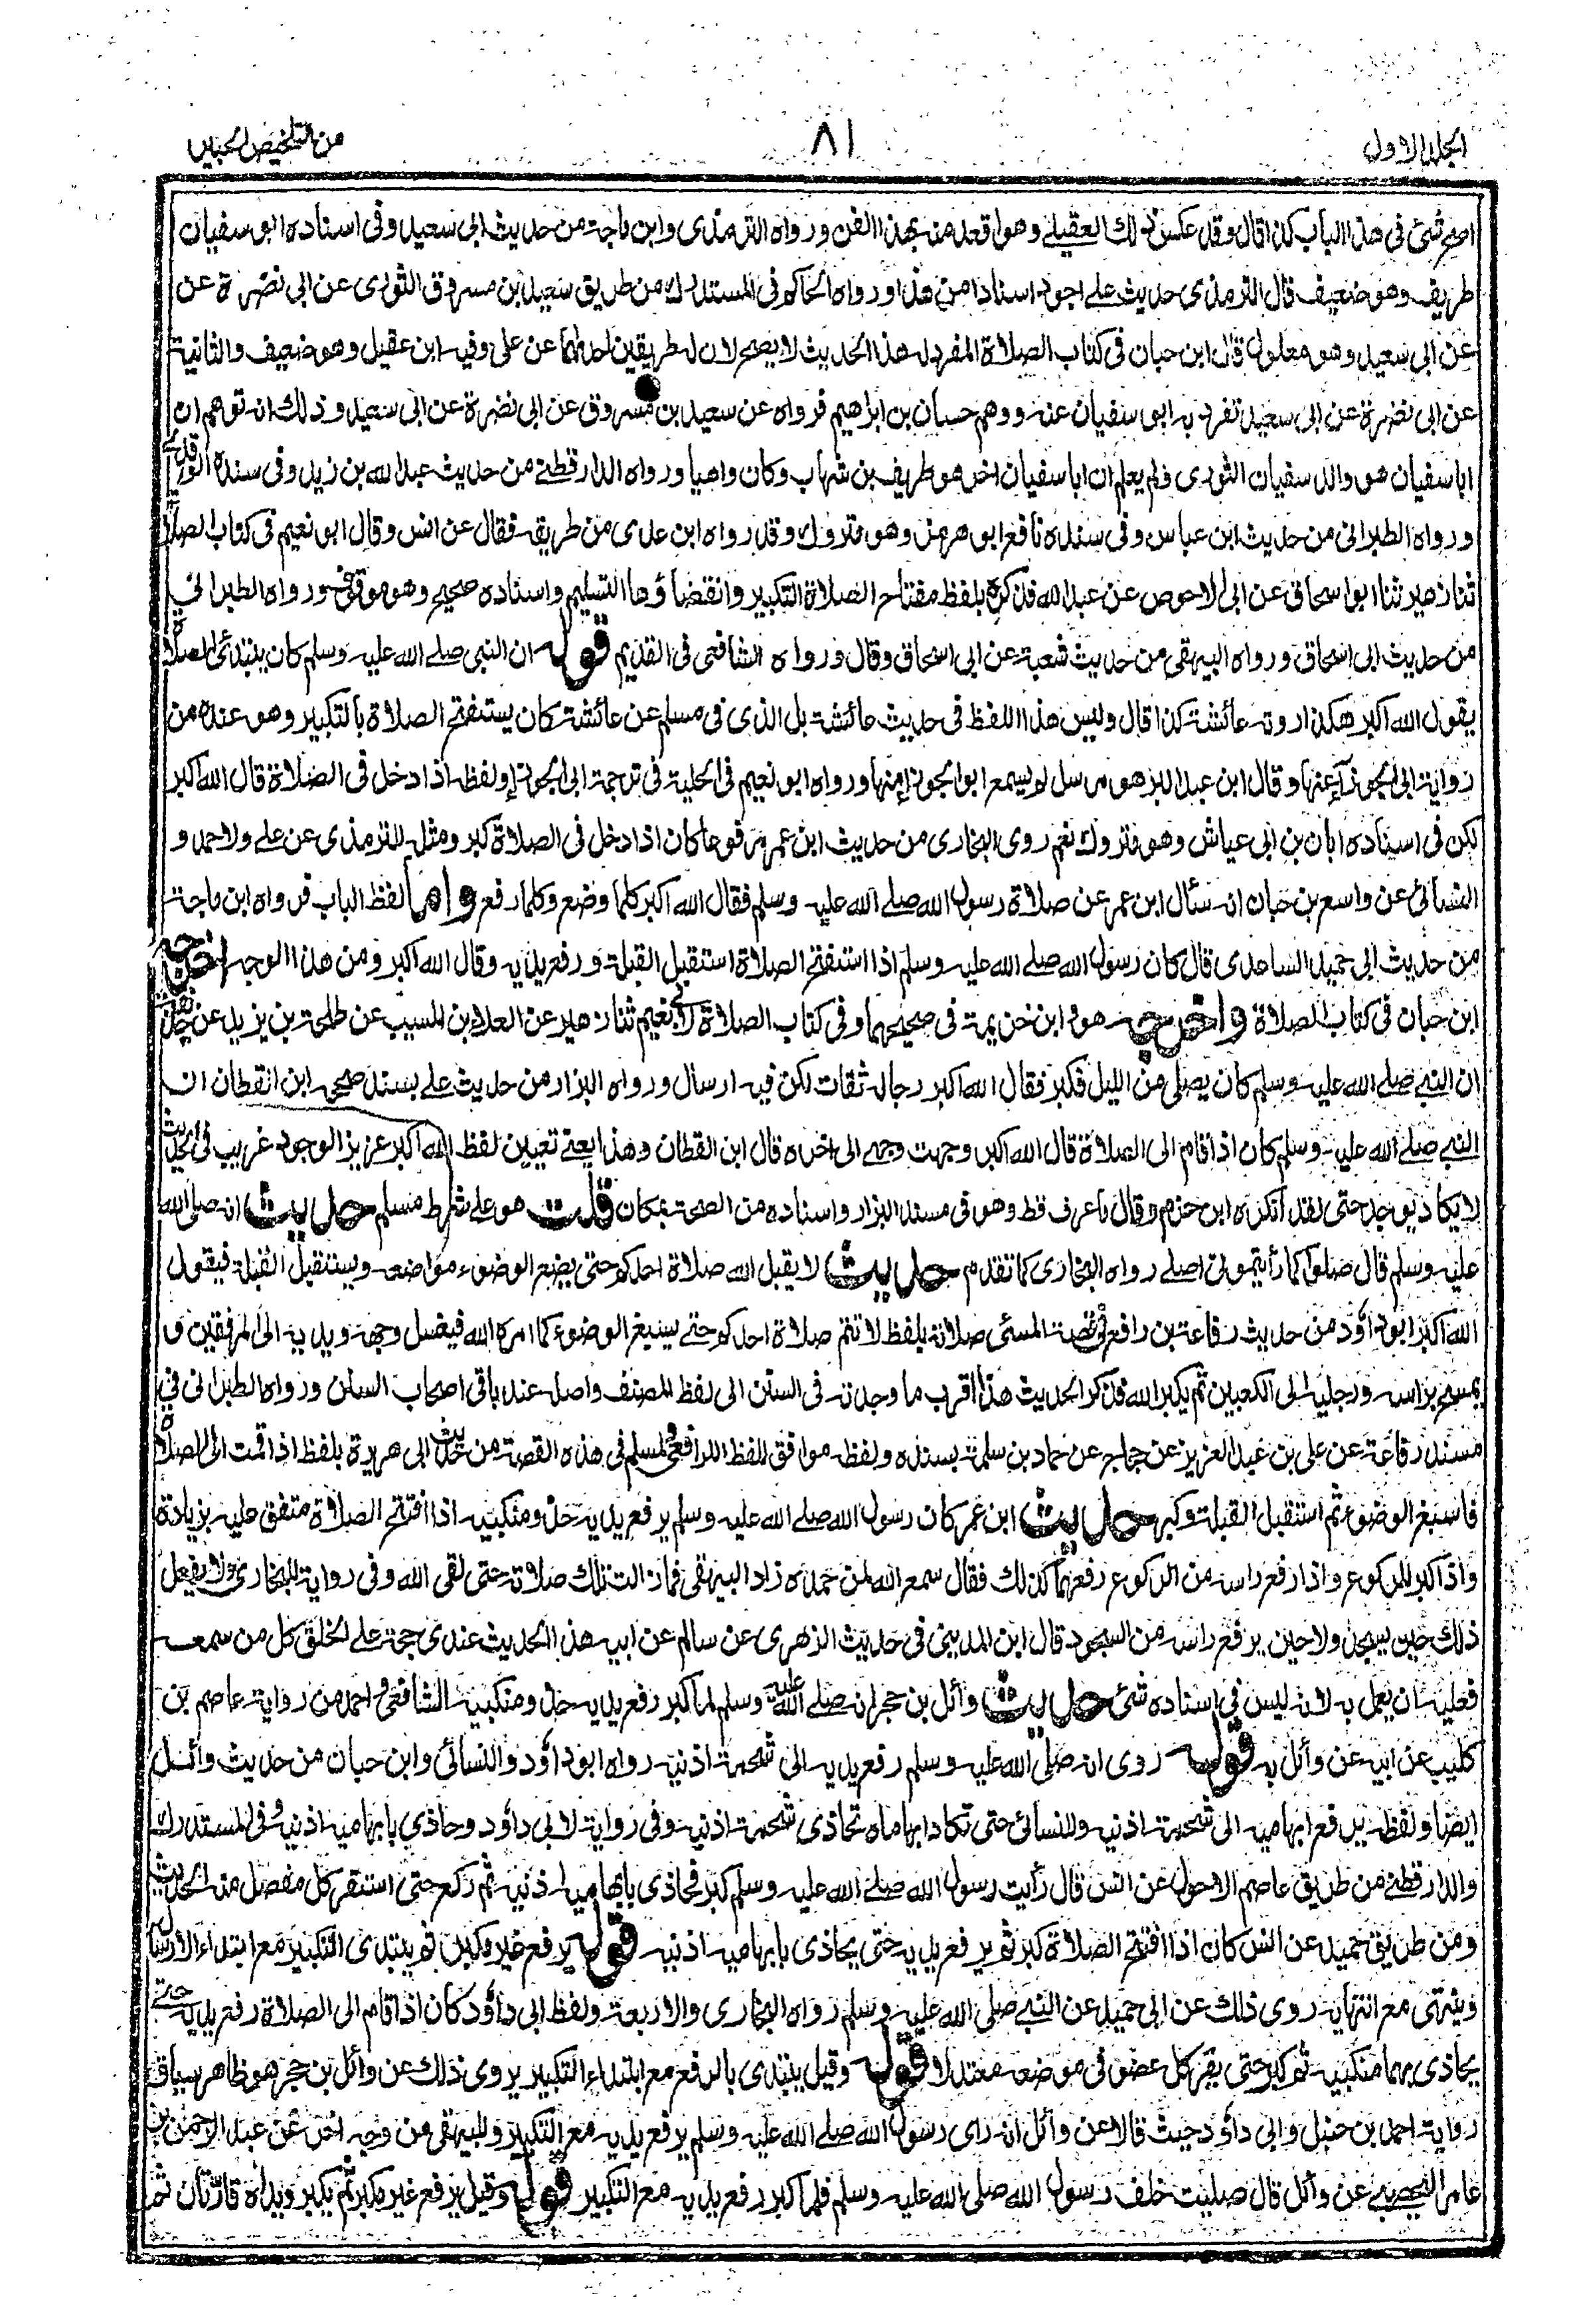 الجلد الاول
٨١
من التلخيص الحبير
اصح شئ في هذا الباب كذا قال وقد عكس ذلك العقيلي وهو اقعد منه بهذا الفن ورواه الترمذى وابن ماجة من حديث ابى سعيد وفى اسناده ابو سفيان
طريف وهو ضعيف قال الترمذى حديث على اجود اسنادا من هذا ورواه الحاكم فى المستدرك من طريق سعيد بن مسروق الثورى عن ابى نضرة عن
عن ابى سعيد وهو معلول قال ابن حبان فى كتاب الصلاة المفرد له هذا الحديث لا يصح لان له طريقين احدهما عن على وفيه ابن عقيل وهو ضعيف والثانية
عن ابى نضرة عن ابى سعيد تفرد به ابو سفيان عنه ووهم حسان بن ابراهيم فرواه عن سعيد بن مسروق عن ابى نضرة عن ابى سعيد وذلك انه توهم ان
ابا سفيان هو والد سفيان الثورى ولم يعلم ان ابا سفيان اخر هو طريف بن شهاب وكان واهيا ورواه الدارقطنے من حديث عبد الله بن زيد وفى سنده الواقدى
ورواه الطبرانى من حديث ابن عباس وفى سنده نافع ابو هرمز وهو متروك وقد رواه ابن عدى من طريقه فقال عن انس وقال ابو نعيم فى كتاب الصلاة
ثنا زهير ثنا ابو اسحاق عن ابى الاحوص عن عبد الله فذكره بلفظ مفتاح الصلاة التكبير وانقضاؤها التسليم واسناده صحيح وهو موقوف ورواه الطبرانى
من حديث ابى اسحاق ورواه البيهقى من حديث شعبة عن ابى اسحاق وقال ورواه الشافعى فى القديم قوله ان النبى صلے الله عليه وسلم كان يبتدئ الصلاة
يقول الله اكبر هكذا روته عائشة كذا قال وليس هذا اللفظ فى حديث عائشة بل الذى فى مسلم عن عائشة كان يستفتح الصلاة بالتكبير وهو عنده من
رواية ابى الجوزاء عنها وقال ابن عبد البر هو مرسل لم يسمع ابو الجوزاء منها ورواه ابو نعيم فى الحلية فى ترجمة ابى الجوزاء ولفظه اذا دخل فى الصلاة قال الله اكبر
لكن فى اسناده ابان بن ابى عياش وهو متروك نعم روى البخارى من حديث ابن عمر مرفوعا كان اذا دخل فى الصلاة كبر ومثله للترمذى عن على ولاحمد و
النسائى عن واسع بن حبان انه سئال ابن عمر عن صلاة رسول الله صلے الله عليه وسلم فقال الله اكبر كلما وضع وكلما رفع واما لفظ الباب فرواه ابن ماجة
من حديث ابى حميد الساعدى قال كان رسول الله صلے الله عليه وسلم اذا استفتح الصلاة استقبل القبلة ورفع يديه وقال الله اكبر ومن هذا الوجه اخرجه
ابن حبان فى كتاب الصلاة واخرجه هو وابن خزيمة فى صحيحهما وفى كتاب الصلاة لابى نعيم ثنا زهير عن العلاء بن المسيب عن طلحة بن يزيد عن حذيفة
ان النبے صلے الله عليه وسلم كان يصلى من الليل فكبر فقال الله اكبر رجاله ثقات لكن فيه ارسال ورواه البزار من حديث على بسند صححه ابن القطان ان
النبے صلے الله عليه وسلم كان اذا قام الى الصلاة قال الله اكبر وجهت وجهى الى اخره قال ابن القطان وهذا يعنے تعيين لفظ الله اكبر عزيز الوجود غريب فى الحديث
لا يكاد يوجد حتى لقد انكره ابن حزم وقال ما عرف قط وهو فى مسند البزار واسناده من الصحة بمكان قلت هو على شرط مسلم حديث انه صلى الله
عليه وسلم قال صلوا كما رأيتمونى اصلے رواه البخارى كما تقدم حديث لا يقبل الله صلاة احدكم حتى يضع الوضوء مواضعه ويستقبل القبلة فيقول
الله اكبر ابو داؤد من حديث رفاعة بن رافع فى قصة المسئ صلاته بلفظ لا تتم صلاة احدكم حتے يسبغ الوضوء كما امره الله فيغسل وجهه ويديه الى المرفقين و
يمسح براسه ورجليه الى الكعبين ثم يكبر الله فذكر الحديث هذا اقرب ما وجدته فى السنن الى لفظ المصنف واصله عند باقى اصحاب السنن ورواه الطبرانى فى
مسند رفاعة عن على بن عبد العزيز عن حجاج عن حماد بن سلمة بسنده ولفظه موافق للفظ الرافعى ولمسلم فى هذه القصة من حديث ابى هريرة بلفظ اذا قمت الى الصلاة
فاسبغ الوضوء ثم استقبل القبلة وكبر حديث ابن عمر كان رسول الله صلے الله عليه وسلم يرفع يديه حذو منكبيه اذا افتتح الصلاة متفق عليه بزيادة
واذا كبر للركوع واذا رفع راسه من الركوع رفعهما كذلك فقال سمع الله لمن حمده زاد البيهقى فما زالت تلك صلاته حتى لقى الله وفى رواية للبخارى ولا يفعل
ذلك حين يسجد ولا حين يرفع راسه من السجود قال ابن المدينى فى حديث الزهرى عن سالم عن ابيه هذا الحديث عندى حجة على الخلق كل من سمعه
فعليه ان يعمل به لانه ليس فى اسناده شئ حديث وائل بن حجر انه صلے الله عليه وسلم لما كبر رفع يديه حذو منكبيه الشافعى واحمد من رواية عاصم بن
كليب عن ابيه عن وائل به قوله روى انه صلى الله عليه وسلم رفع يديه الى شحمة اذنيه رواه ابو داؤد والنسائى وابن حبان من حديث وائل
ايضا ولفظه يرفع ابهاميه الى شحمة اذنيه وللنسائى حتى تكاد ابهاماه تحاذى شحمة اذنيه وفى رواية لابى داؤد وحاذى بابهاميه اذنيه وفى المستدرك
والدارقطنے من طريق عاصم الاحول عن انس قال رأيت رسول الله صلے الله عليه وسلم كبر فحاذى بابهاميه اذنيه ثم ركع حتى استقر كل مفصل منه الحديث
ومن طريق حميد عن انس كان اذا افتتح الصلاة كبر ثم يرفع يديه حتى يحاذى بابهاميه اذنيه قوله يرفع غير مكبر ثم يبتدى التكبير مع ابتداء الارسال
وينتهى مع انتهائه روى ذلك عن ابى حميد عن النبے صلى الله عليه وسلم رواه البخارى والاربعة ولفظ ابى داؤد كان اذا قام الى الصلاة رفع يديه حتے
يحاذى بهما منكبيه ثم كبر حتى يقر كل عضو فى موضعه معتدلا قوله وقيل يبتدى بالرفع مع ابتداء التكبير يروى ذلك عن وائل بن حجر هو ظاهر سياق
رواية احمد بن حنبل وابى داؤد حيث قالا عن وائل انه راى رسول الله صلے الله عليه وسلم يرفع يديه مع التكبير وللبيهقى من وجه اخر عن عبد الرحمن بن
عامر اليحصبے عن وائل قال صليت خلف رسول الله صلى الله عليه وسلم فلما كبر رفع يديه مع التكبير قوله وقيل يرفع غير مكبر ثم يكبر ويداه قارتان ثم